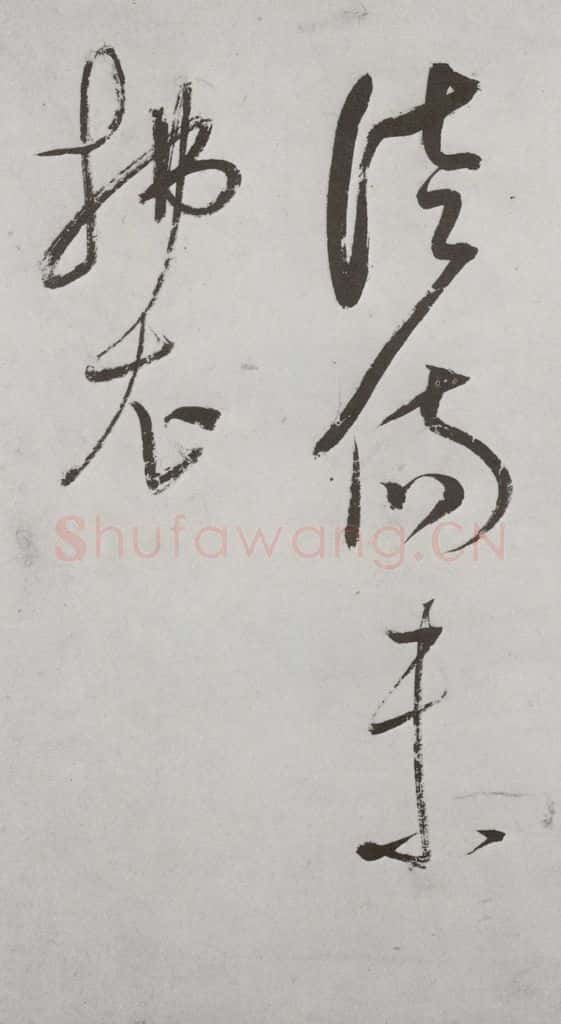 徒傷未
拂衣
Shufawang.CN